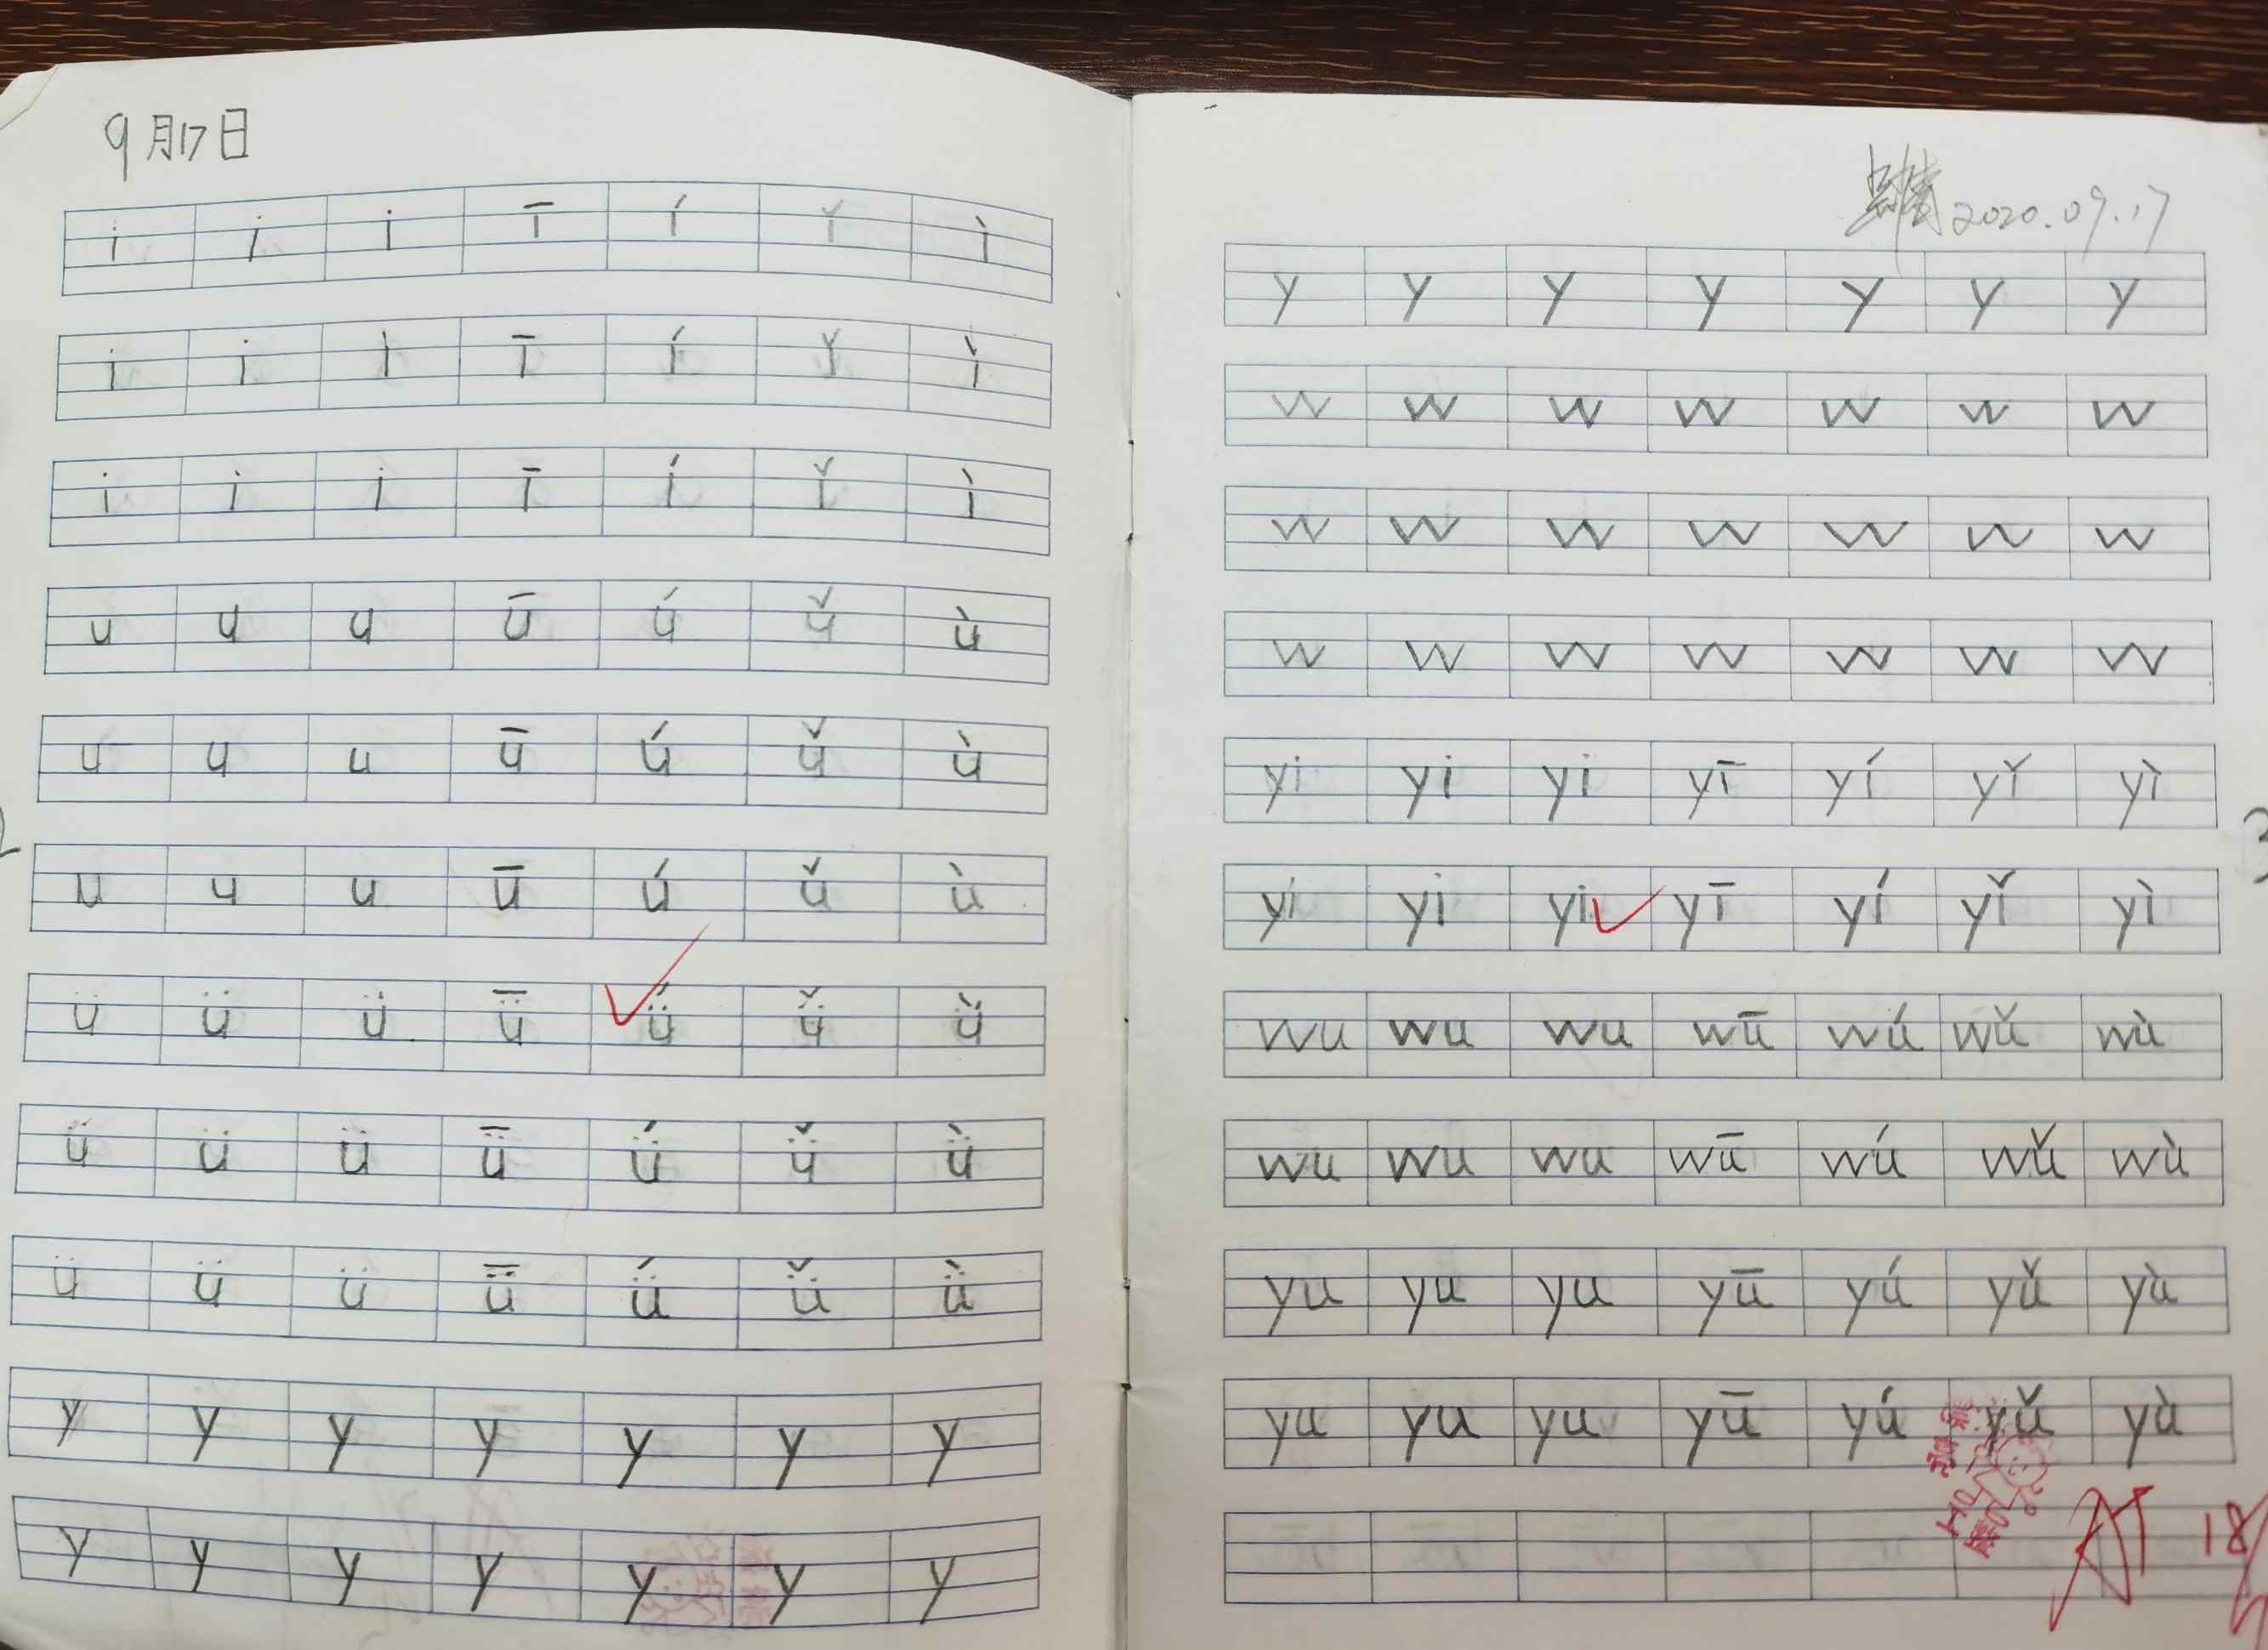 9月17日
i i i ī í ǐ ì
i i i ī í ǐ ì
i i i ī í ǐ ì
u u u ū ú ǔ ù
u u u ū ú ǔ ù
u u u ū ú ǔ ù
ü ü ü ǖ ǘ ǚ ǜ
ü ü ü ǖ ǘ ǚ ǜ
ü ü ü ǖ ǘ ǚ ǜ
y y y y y y y
y y y y y y y
2
2020.09.17
y y y y y y y
w w w w w w w
w w w w w w w
w w w w w w w
yi yi yi yī yí yǐ yì
yi yi yi yī yí yǐ yì
wu wu wu wū wú wǔ wù
wu wu wu wū wú wǔ wù
yu yu yu yū yú yǔ yù
yu yu yu yū yú yǔ yù
3
18/